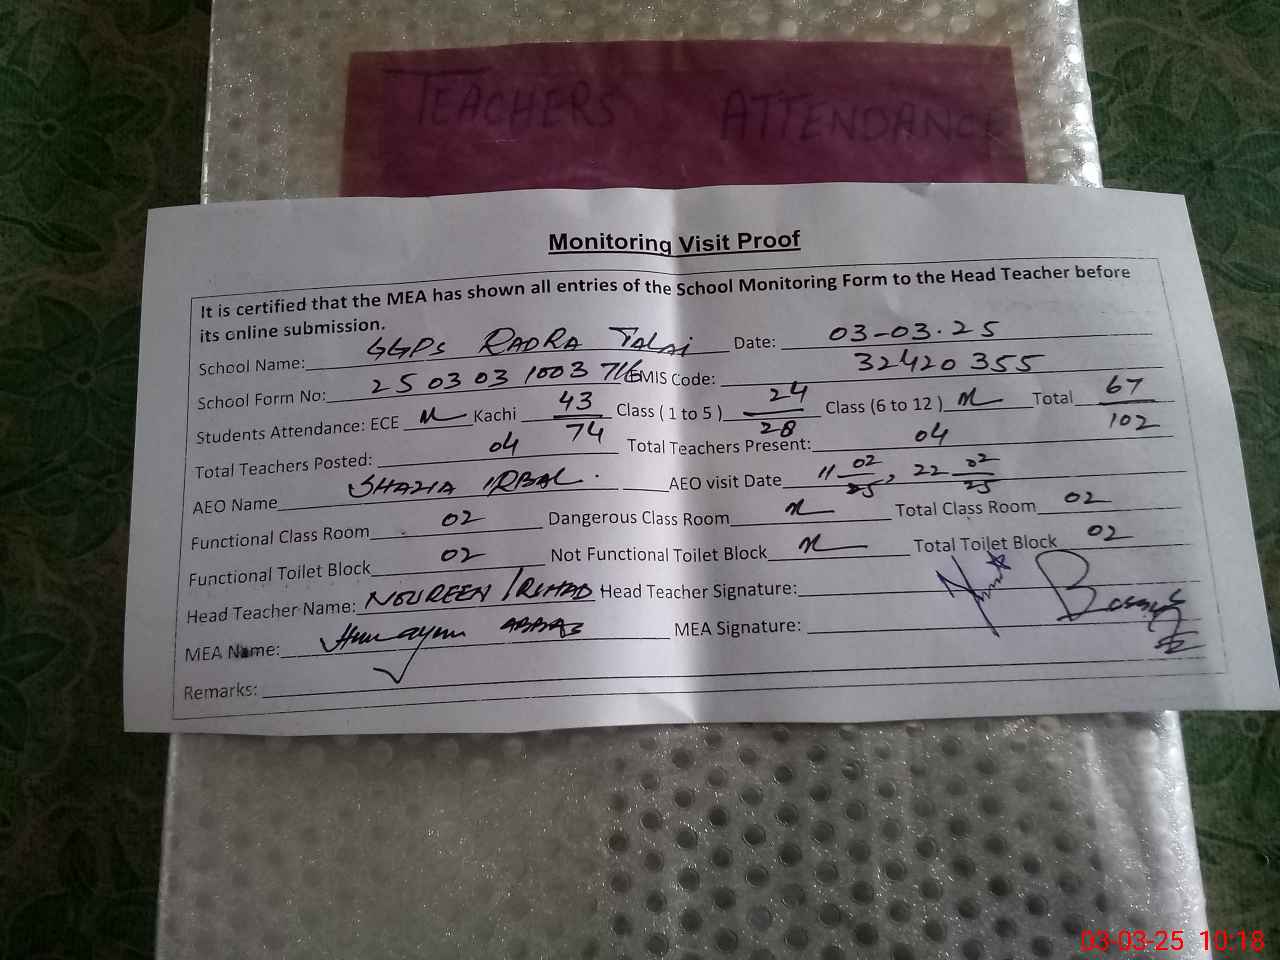 TEACHERS ATTENDANCE
Monitoring Visit Proof
It is certified that the MEA has shown all entries of the School Monitoring Form to the Head Teacher before
its online submission.
School Name: GGPS RADRA TALAI Date: 03-03.25
School Form No: 2503031003716 EMIS Code: 32420355
Students Attendance: ECE Kachi 43/74 Class ( 1 to 5 ) 24/28 Class (6 to 12 ) Total 67/102
Total Teachers Posted: 04 Total Teachers Present: 04
AEO Name SHAZIA IQBAL. AEO visit Date 11 02/25, 22 02/25
Functional Class Room 02 Dangerous Class Room Total Class Room 02
Functional Toilet Block 02 Not Functional Toilet Block Total Toilet Block 02
Head Teacher Name: NOUREEN IRSHAD Head Teacher Signature:
MEA Name: Humayun ABBAS MEA Signature:
Remarks:
03-03-25 10:18